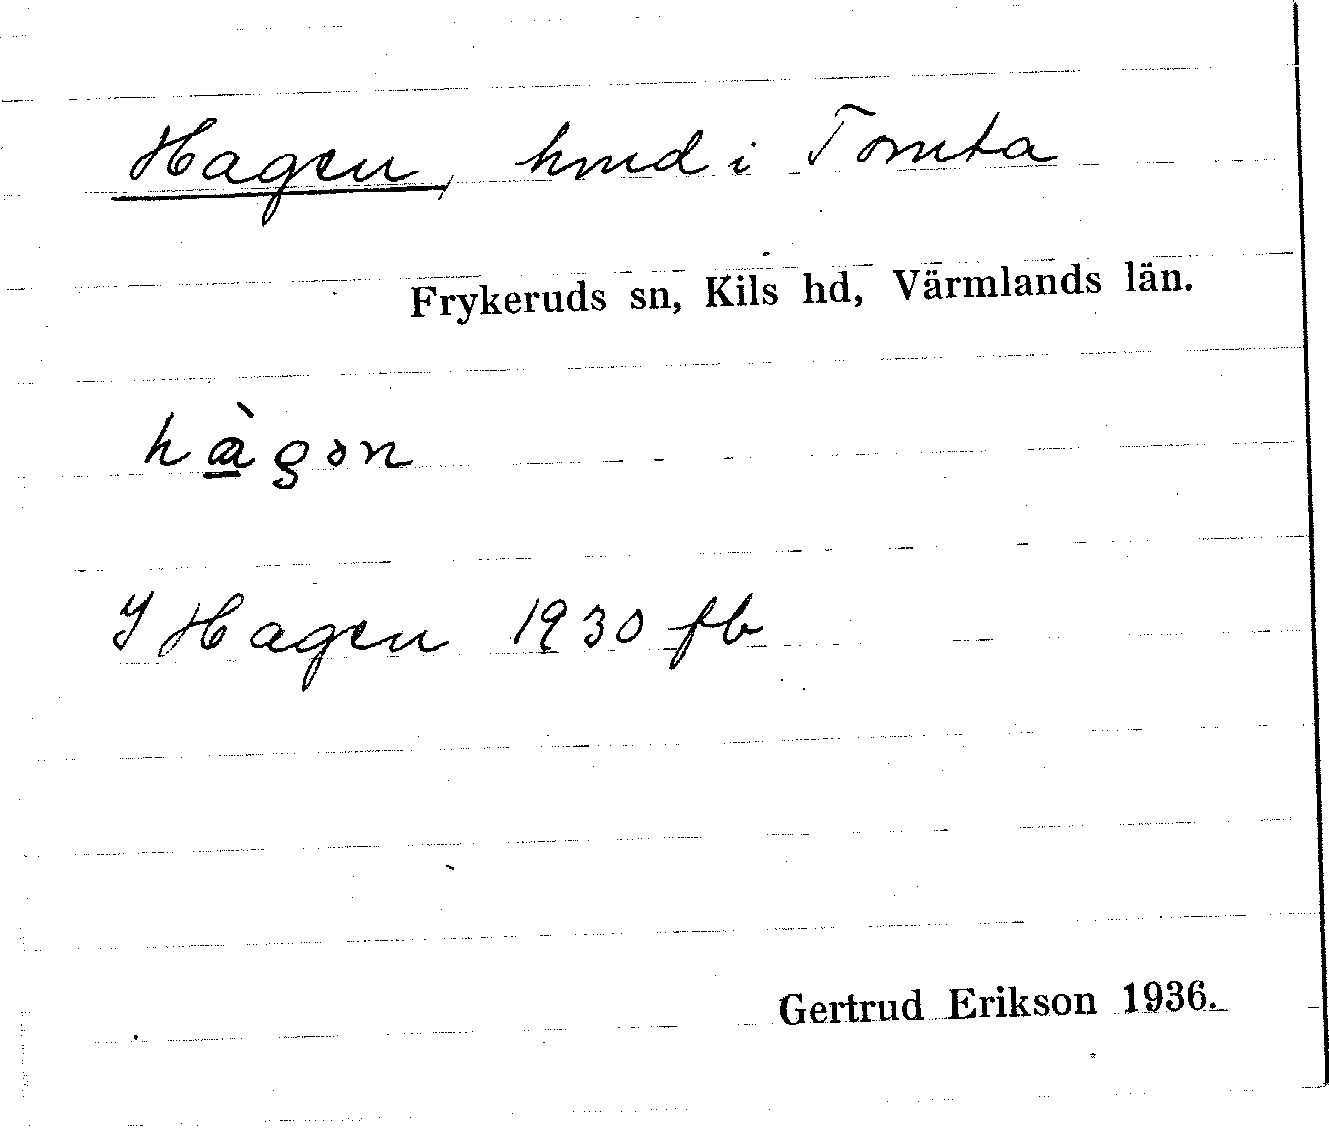 Hagen, hmd i Tomta
Frykeruds sn, Kils hd, Värmlands län.
hàgon
I Hagen 1930 fb
Gertrud Erikson 1936.